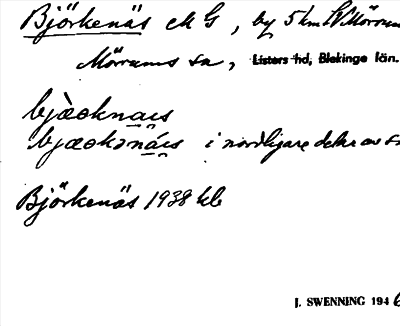 Björkenäs ck G, by 5 km SV Mörrum
Mörrums sn, Listers hd, Blekinge län.
bjæoknæs
bjæokənæs i nordligare delar av sn
Björkenäs 1938 kb
J. SWENNING 1946